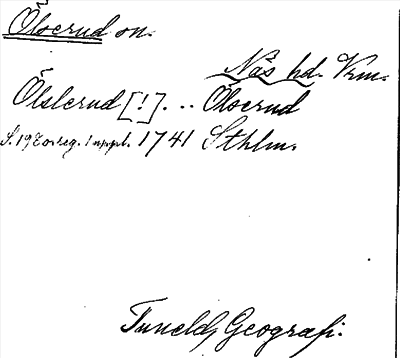 Ölserud sn.
Näs hd. Vrm.
Ölslerud [!]. .. Ölserud
S. 19 1 uppl. 1741 Sthlm.
Tunelds Geografi.